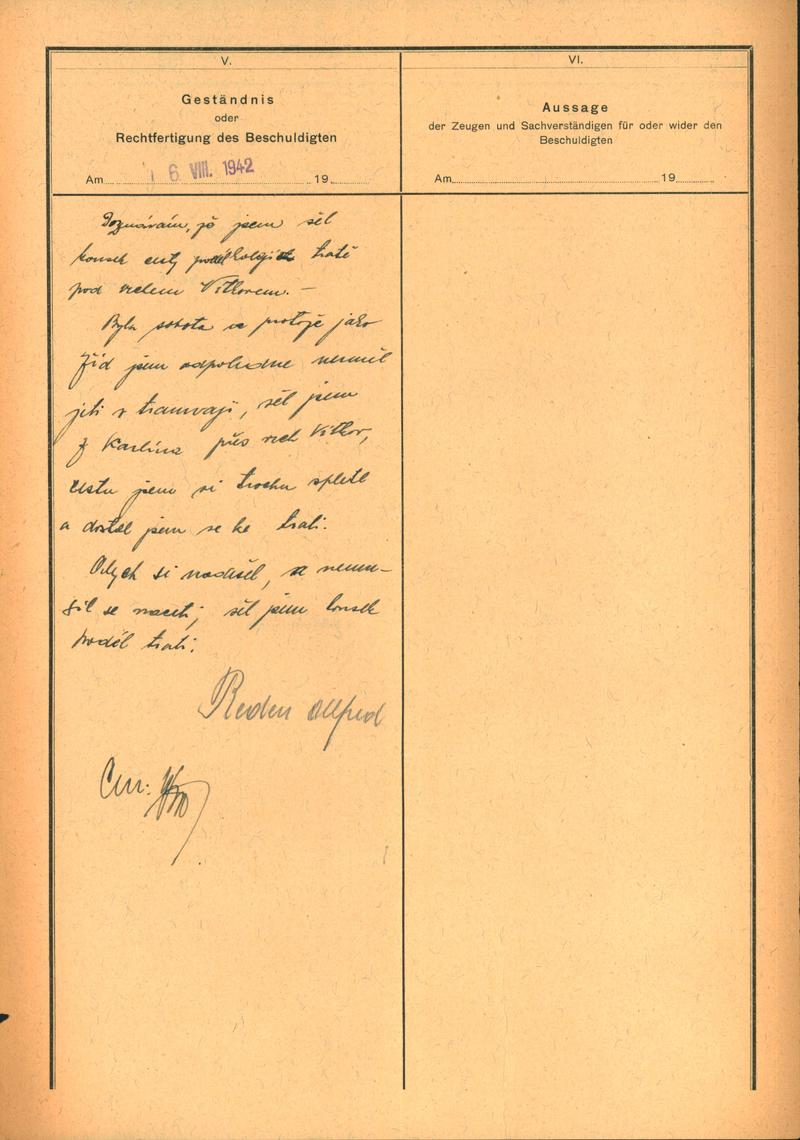 V.
Geständnis
oder
Rechtfertigung des Beschuldigten
Am 6 VIII. 1942 19
Doznávám, že jsem šel
kousek cesty podél trati
pod vrchem Vítkovem. –
Byla sobota a protože jako
žid jsem odpoledne nesměl
jeti v tramvaji, šel jsem
z Karlína přes vrch Vítkov,
cestu jsem si trochu spletl
a dostal jsem se ke trati.
Abych si nadešel, a nemu-
sil se vraceti, šel jsem kousek
podél trati.
Reden Alfred
VI.
Aussage
der Zeugen und Sachverständigen für oder wider den
Beschuldigten
Am 19